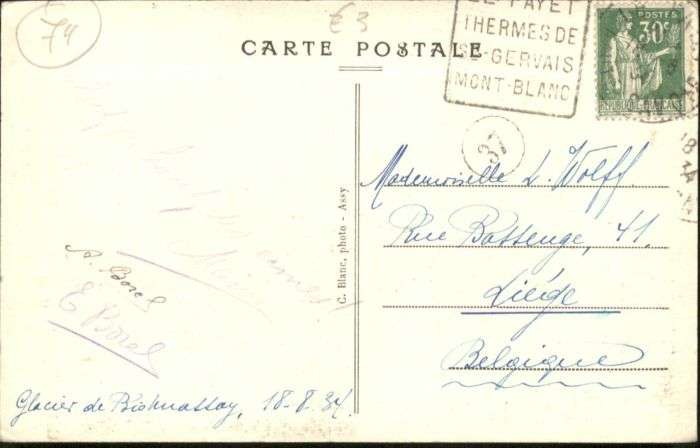 74
€3
LE FAYET
THERMES DE
ST-GERVAIS
MONT-BLANC
POSTES
30c
REPUBLIQUE FRANÇAISE
CARTE POSTALE
37
Mademoiselle L. Wolff
Rue Bassenge, 41.
Liége
Belgique
C. Blanc, photo - Assy
A. Borel
E Borel
Glacier de Bionnassay, 18-8.37